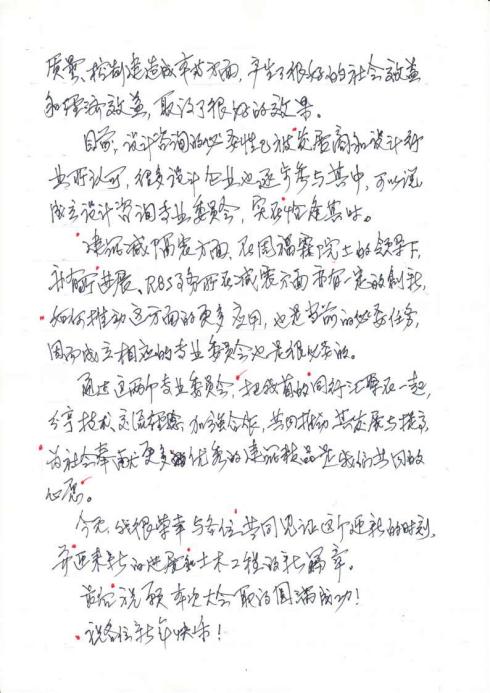 质量、控制建造成本等方面，产生了很好的社会效益
和经济效益，取设了很好的效果。
目前，设计咨询的必要性已被发展商和设计行
业所认可，很多设计企业也逐步参与其中，可以说
成立设计咨询专业委员会，实在恰是其时。
建筑减隔震方面，在周福霖院士的领导下，
我有所进展，RBS事务所在减震方面亦有一定的创新，
如何推动这方面的更多应用，也是当前的必要任务，
因而成立相应的专业委员会也是很必要的。
通过这两个专业委员会，把我省的同行汇聚在一起，
分享技术、交流经验、加强合作，共同推动其发展与提高，
为社会奉献更多的优秀的建筑精品是我们共同的
心愿。
今天，我很荣幸与各位共同见证这个迎新的时刻，
并迎来新的进展和土木工程的新篇章。
最后祝愿本次大会取得圆满成功！
祝各位新年快乐！